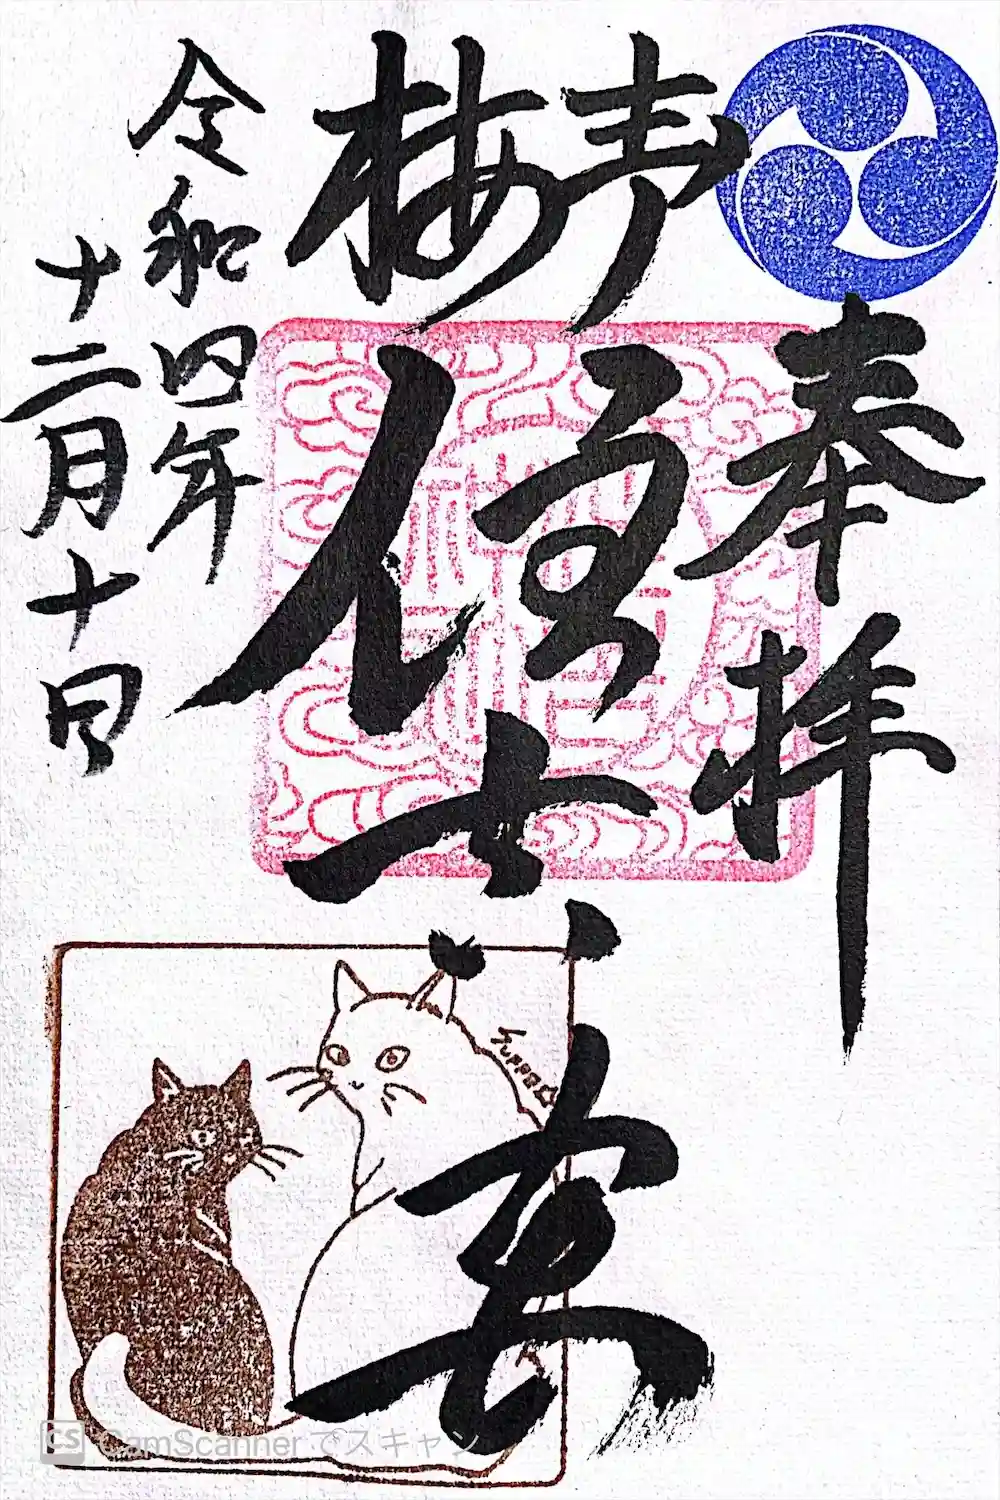 奉拝
青梅
住吉
令和四年
十二月十日
CamScanner でスキャン